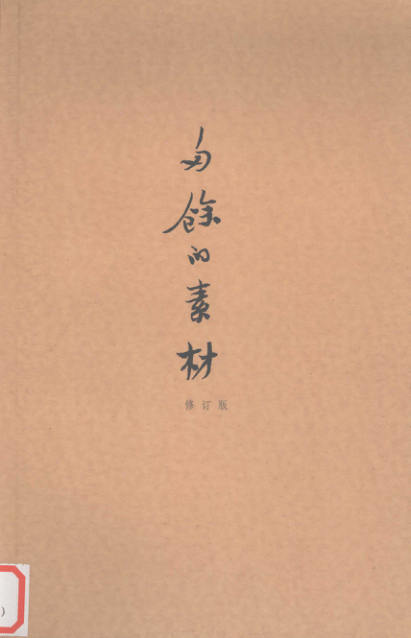 多餘的素材
修订版
)